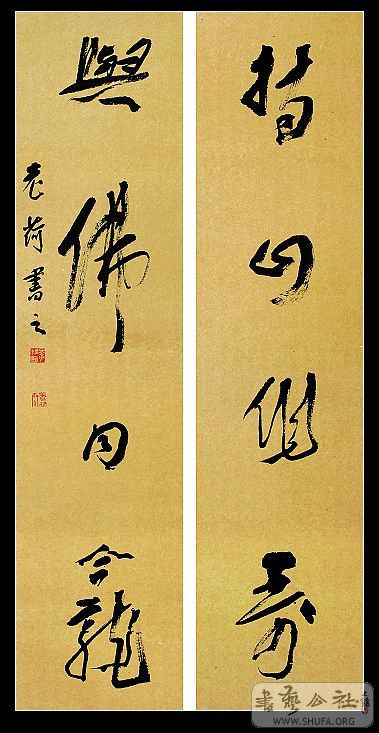 指山壽
與佛同龕
書之
書藝公社
www.SHUFA.ORG